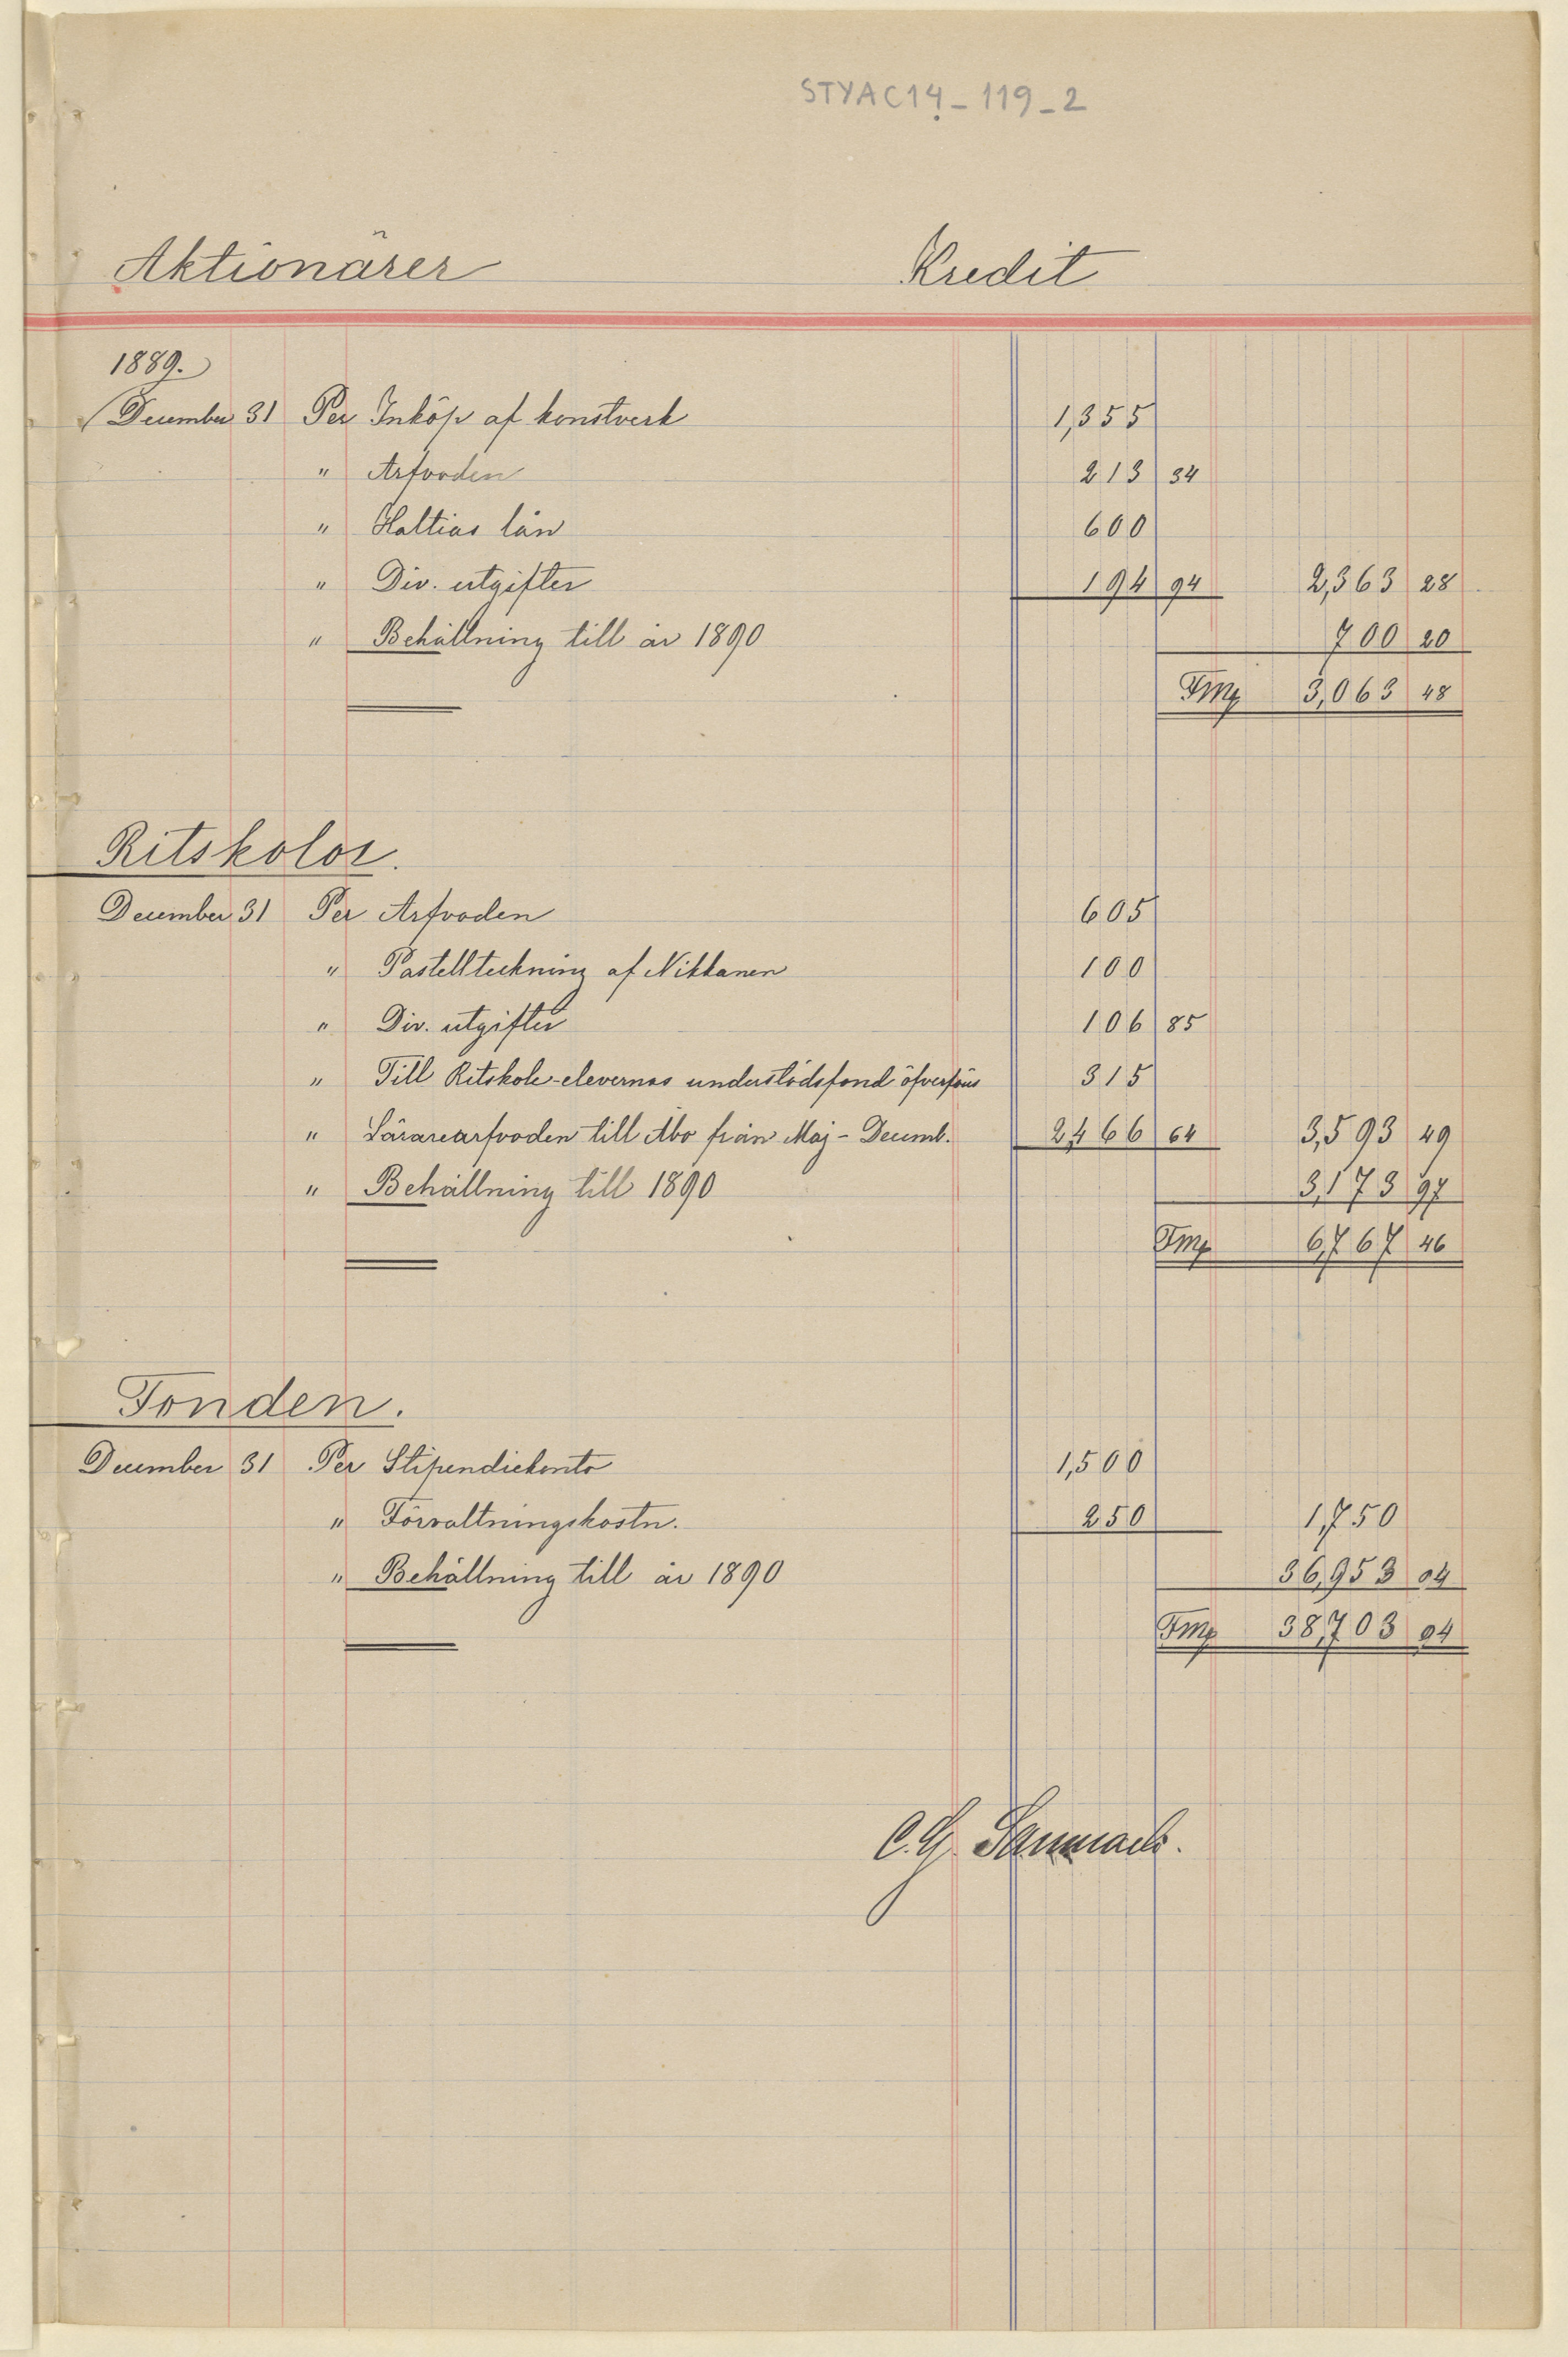 STYAC14-119-2
Aktionärer Kredit
1889.
December 31 Per Inköp af konstverk 1,355
" Arfvoden 213 34
" Haltias lån 600
" Div. utgifter 194 94 2,363 28
" Behållning till år 1890 700 20
Fmk 3,063 48
Ritskolor.
December 31 Per Arfvoden 605
" Pastellteckning af Nikkanen 100
" Div. utgifter 106 85
" Till Ritskole-elevernas understödsfond öfverförs 315
" Lärarearfvoden till Åbo från Maj - Decemb. 2,466 64 3,593 49
" Behållning till 1890 3,173 97
Fmk 6,767 46
Fonden.
December 31 Per Stipendiekonto 1,500
" Förvaltningskostn. 250 1,750
" Behållning till år 1890 36,953 04
Fmk 38,703 04
C. G.